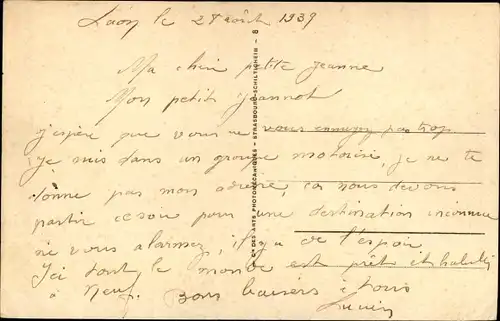 Laon le 28 août 1939
Ma chère petite Jeanne
Mon petit Jeannot
j'espère que vous ne vous ennuyez pas trop
je suis dans un groupe motorisé, je ne te
donne pas mon adresse, car nous devons
partir ce soir pour une destination inconnue
ne vous alarmez, il y a de l'espoir
Ici tout le monde est prêt et habillé
à neuf. bons baisers à tous
Lucien
CIE DES ARTS PHOTOMÉCANIQUES - STRASBOURG-SCHILTIGHEIM - 8